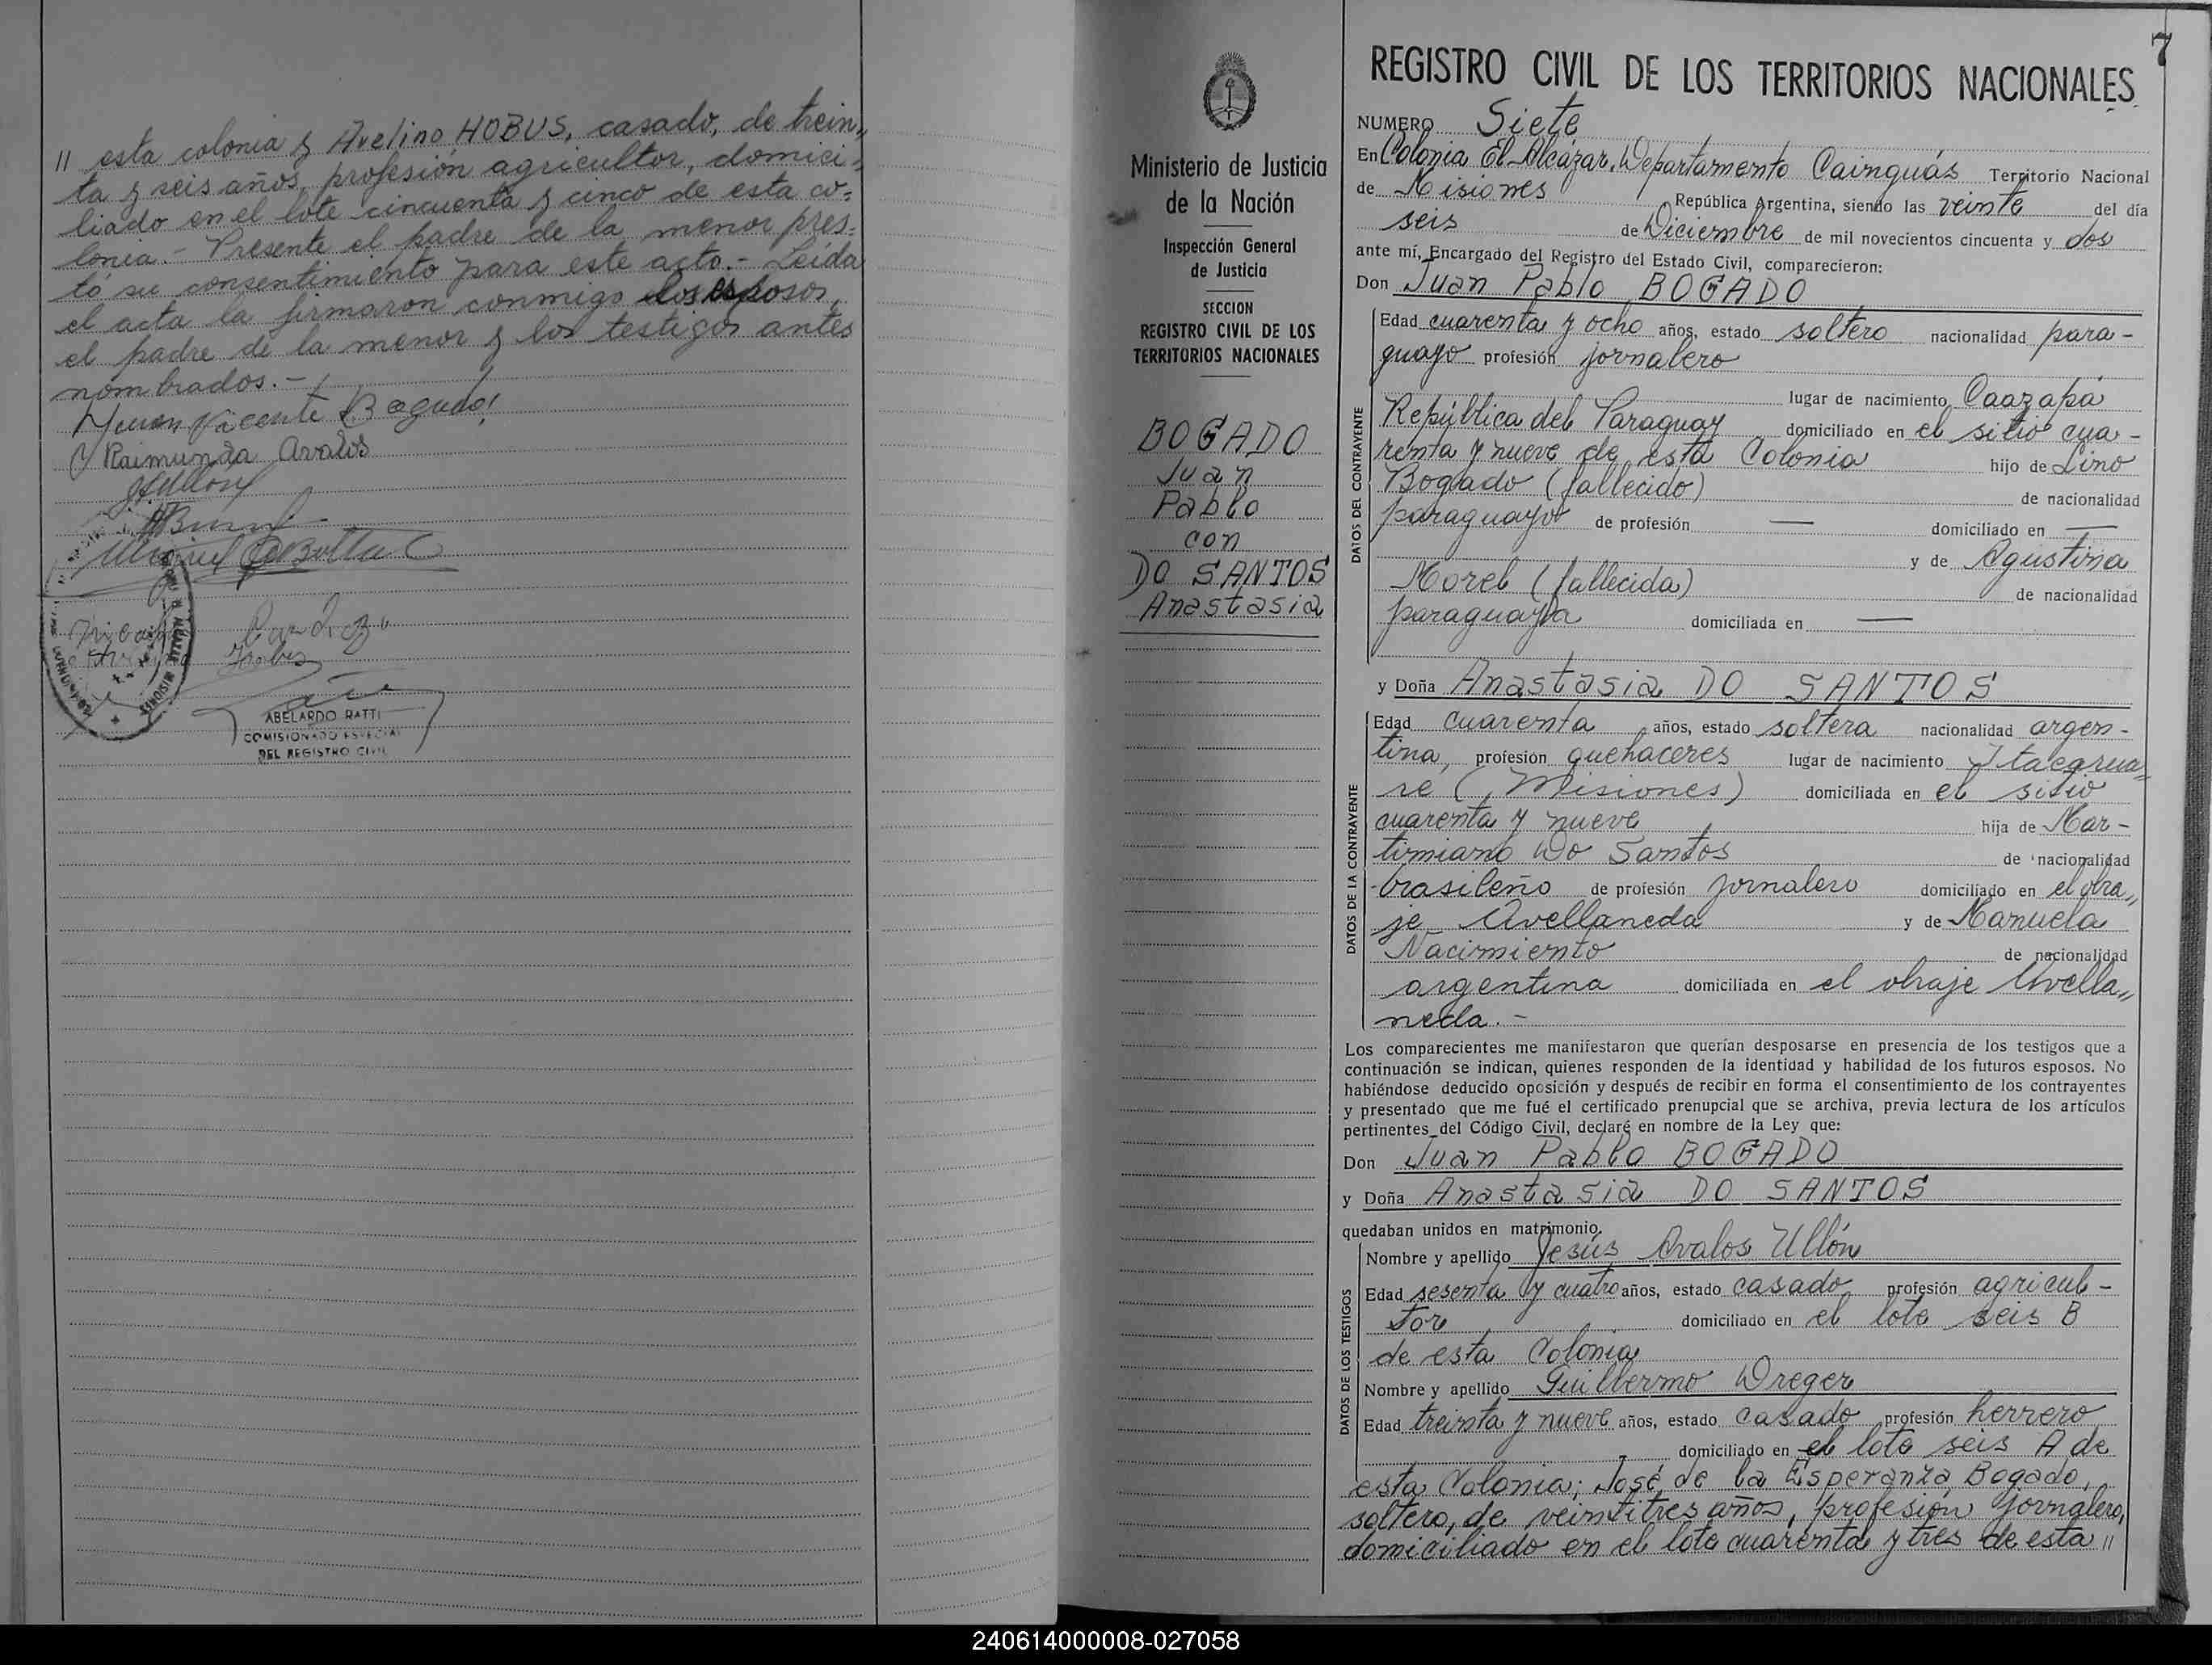 " esta colonia y Avelino HOBUS, casado, de trein"
ta y seis años, profesión agricultor, domici=
liado en el lote cincuenta y cinco de esta co=
lonia.- Presente el padre de la menor pres=
tó su consentimiento para este acto.- Leída
el acta la firmaron conmigo los esposos,
el padre de la menor y los testigos antes
nombrados.-
Juan Vicente Bogado
Raimunda Avalos
ABELARDO RATTI
COMISIONADO ESPECIAL
DEL REGISTRO CIVIL
7
Ministerio de Justicia
de la Nación
Inspección General
de Justicia
SECCION
REGISTRO CIVIL DE LOS
TERRITORIOS NACIONALES
BOGADO
Juan
Pablo
con
DO SANTOS
Anastasia
REGISTRO CIVIL DE LOS TERRITORIOS NACIONALES
NUMERO Siete
En Colonia El Alcázar, Departamento Cainguás Territorio Nacional
de Misiones República Argentina, siendo las veinte del día
seis de Diciembre de mil novecientos cincuenta y dos
ante mí, Encargado del Registro del Estado Civil, comparecieron:
Don Juan Pablo BOGADO
DATOS DEL CONTRAYENTE
Edad cuarenta y ocho años, estado soltero nacionalidad para-
guayo profesión jornalero
lugar de nacimiento Caazapá
República del Paraguay domiciliado en el sitio cua-
renta y nueve de esta Colonia hijo de Lino
Bogado (fallecido) de nacionalidad
paraguayo de profesión — domiciliado en —
y de Agustina
Morel (fallecida) de nacionalidad
paraguaya domiciliada en —
y Doña Anastasia DO SANTOS
DATOS DE LA CONTRAYENTE
Edad cuarenta años, estado soltera nacionalidad argen-
tina, profesión quehaceres lugar de nacimiento Itacarua=
ré (Misiones) domiciliada en el sitio
cuarenta y nueve hija de Mar-
timiano Do Santos de nacionalidad
brasileño de profesión jornalero domiciliado en el obra"
je Avellaneda y de Manuela
Nacimiento de nacionalidad
argentina domiciliada en el obraje Avella"
neda.-
Los comparecientes me manifestaron que querían desposarse en presencia de los testigos que a
continuación se indican, quienes responden de la identidad y habilidad de los futuros esposos. No
habiéndose deducido oposición y después de recibir en forma el consentimiento de los contrayentes
y presentado que me fué el certificado prenupcial que se archiva, previa lectura de los artículos
pertinentes del Código Civil, declaré en nombre de la Ley que:
Don Juan Pablo BOGADO
y Doña Anastasia DO SANTOS
quedaban unidos en matrimonio.
DATOS DE LOS TESTIGOS
Nombre y apellido Jesús Avalos Ullón
Edad sesenta y cuatro años, estado casado profesión agricul-
tor domiciliado en el lote seis B
de esta Colonia
Nombre y apellido Guillermo Dreger
Edad treinta y nueve años, estado casado profesión herrero
domiciliado en el lote seis A de
esta Colonia; José de la Esperanza Bogado,
soltero, de veintitres años, profesión jornalero,
domiciliado en el lote cuarenta y tres de esta "
240614000008-027058